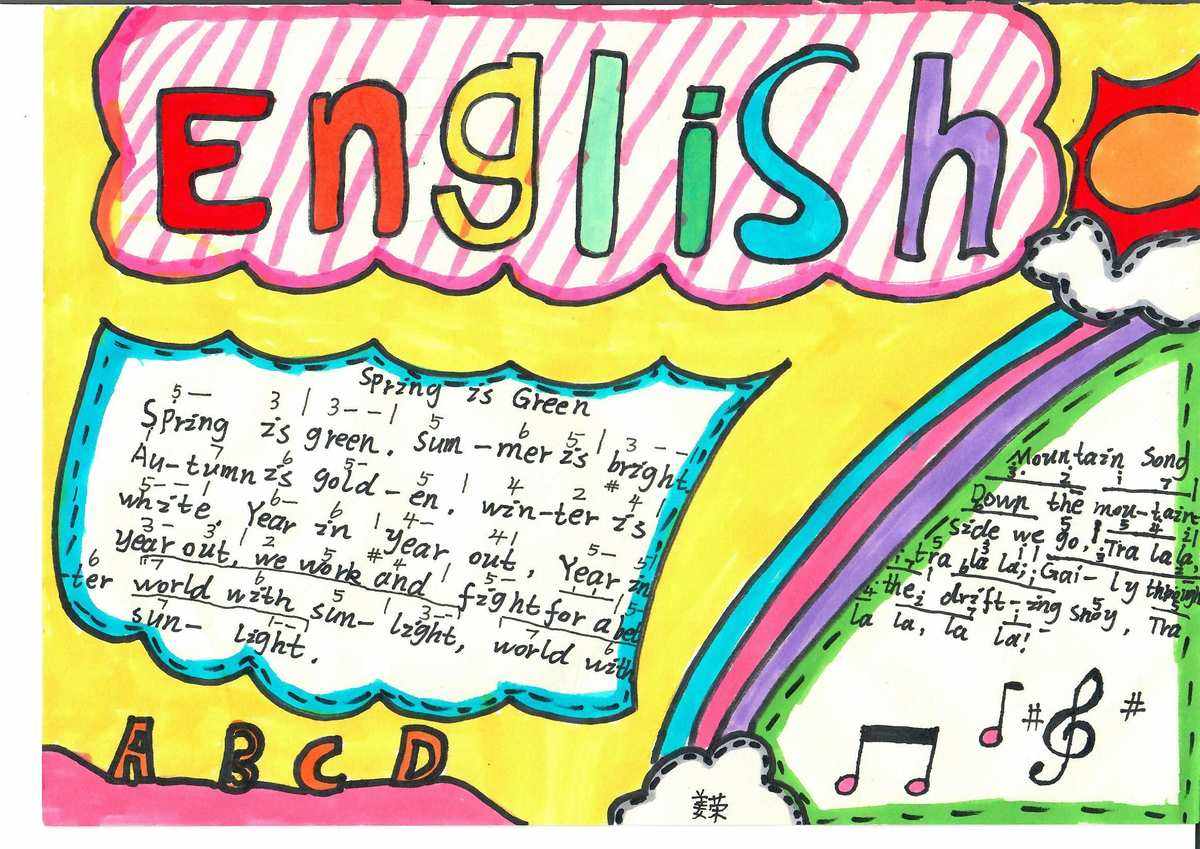 English
Spring is Green
5 — 3 | 3 - - | 5 6 5 | 3 - -
Spring is green. sum-mer is bright.
1 7 6 5- 5 | 4 2 # 4 |
Au-tumn is gold-en. win-ter is
5 - - | 6- 6 | 4- 4 | 5- 5 |
white. Year in year out, Year in
3- 3 | 2 5 #4 | 5- | 5-
year out, we work and fight for a bet
6 7 6 5 | 3-
-ter world with sun-light, world with
7 | 1--
sun-light.
A B C D
Mountain Song
Down the moun-tain
side we go, Tra la la,
tra la la; Gai-ly through
the drift-ing snoy, Tra
la la, la la!
# #
姜荣